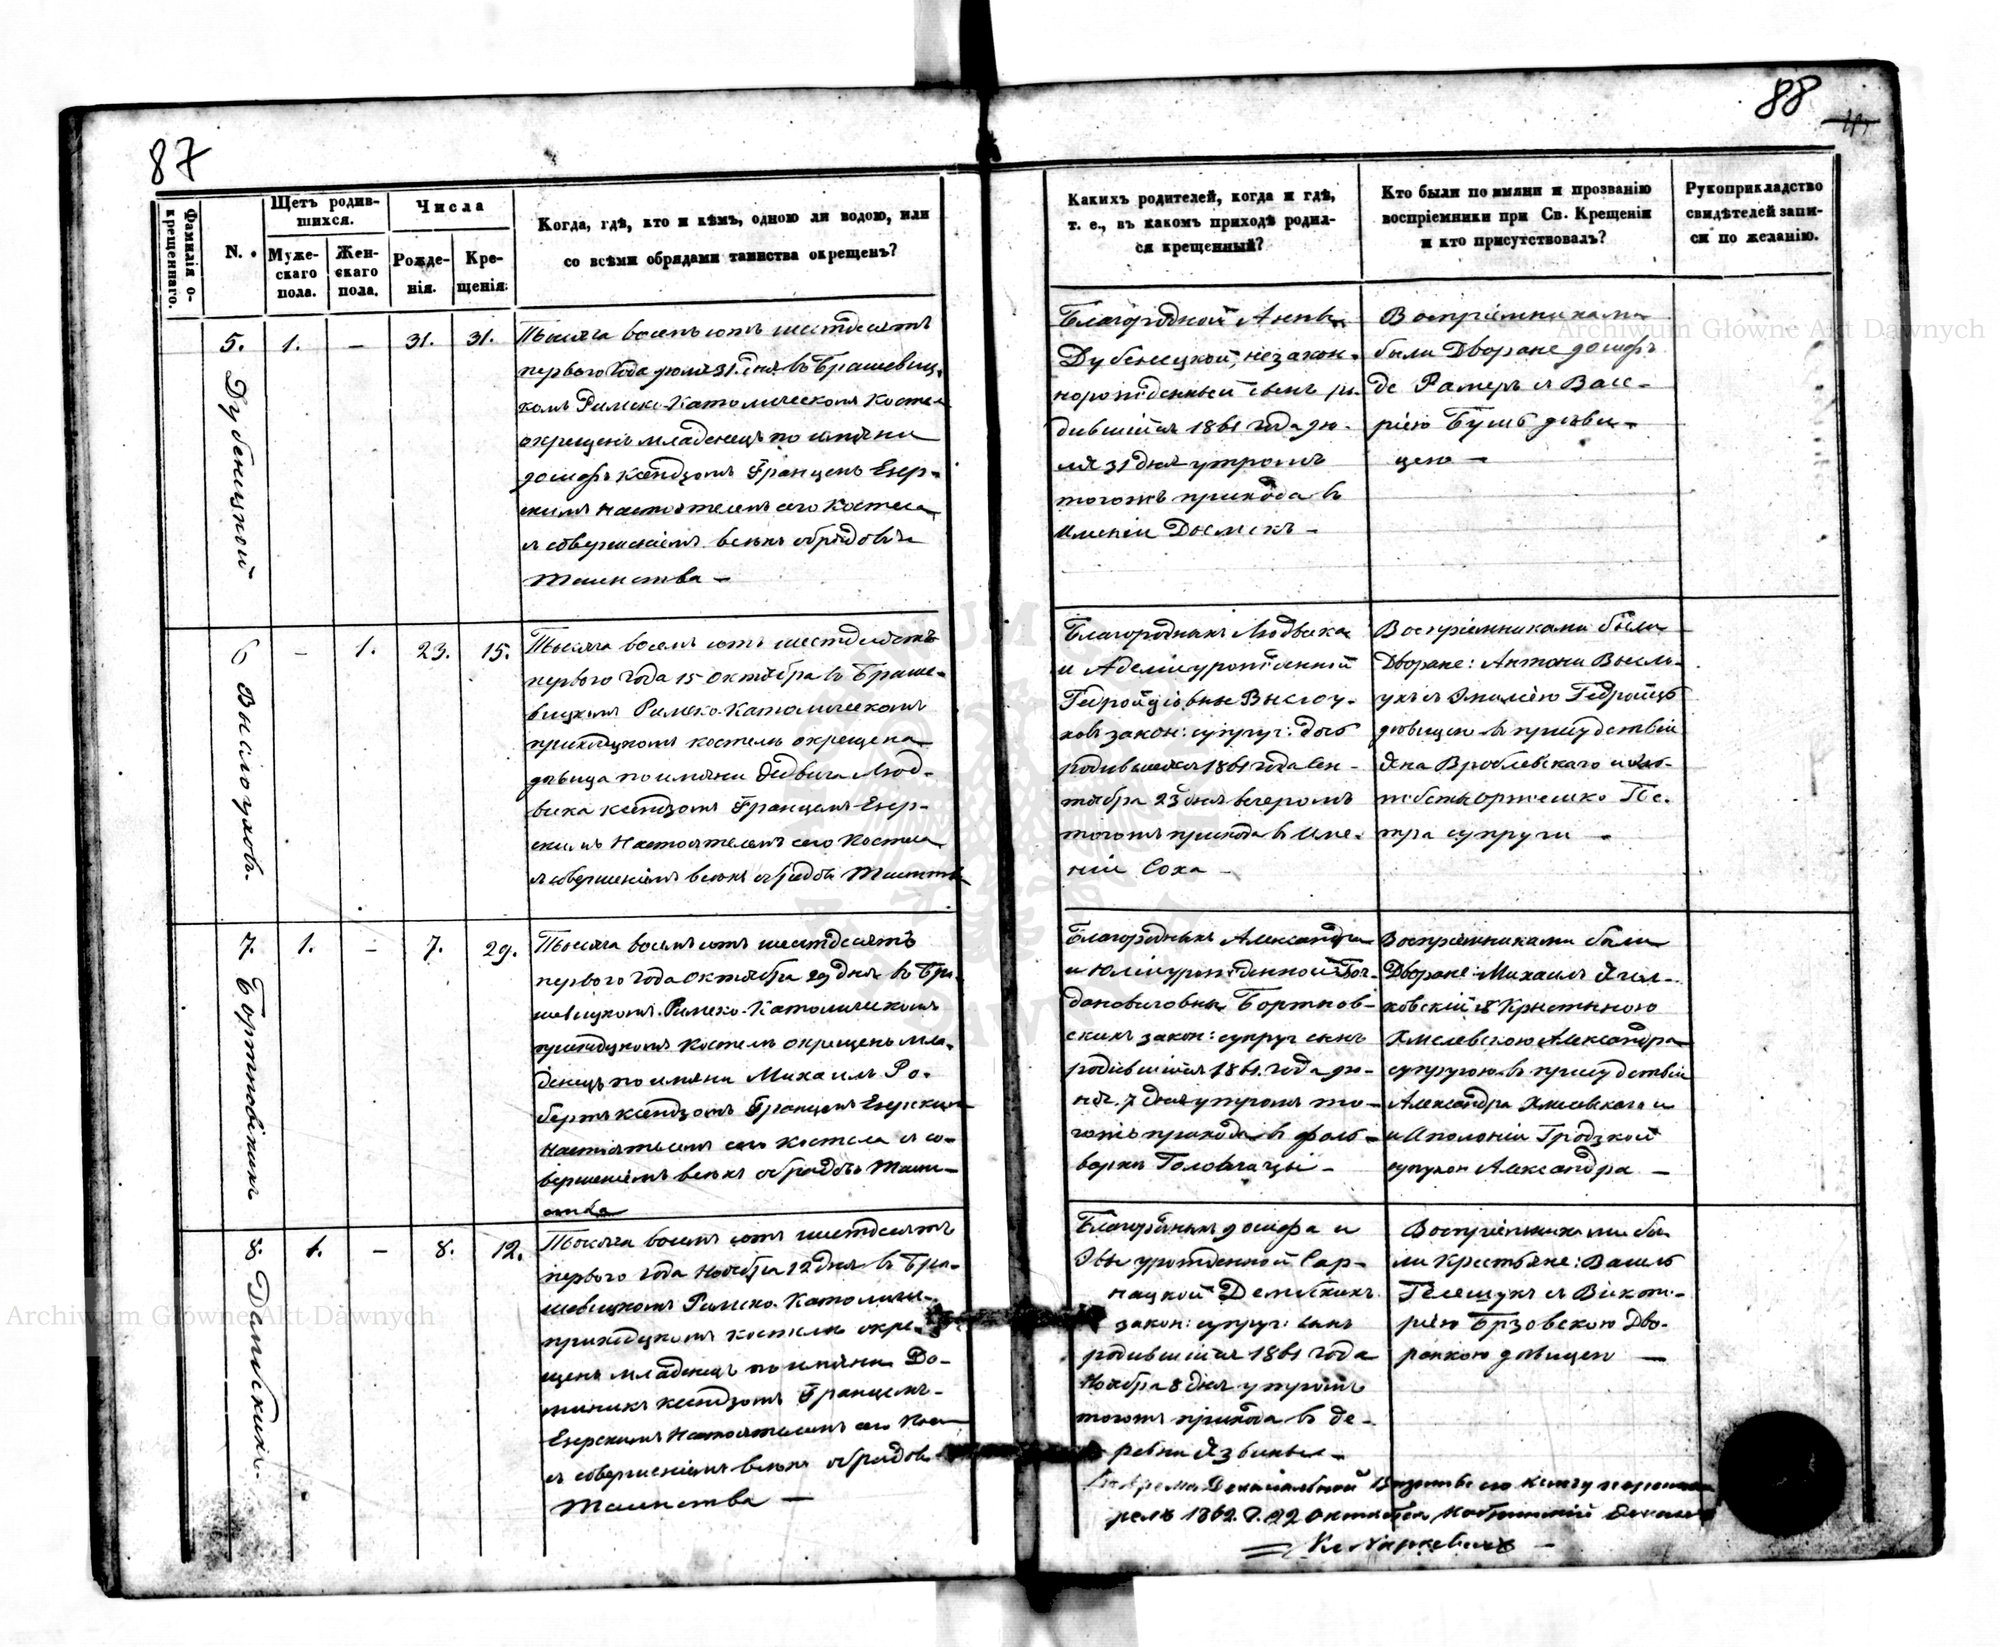 87
88
Фамилія окрещеннаго.
N.
Щетъ родившихся.
Мужескаго пола.
Женскаго пола.
Числа
Рожденія.
Крещенія.
Когда, гдѣ, кто и кѣмъ, одною ли водою, или
со всѣми обрядами таинства окрещенъ?
Каких родителей, когда и гдѣ,
т. е., въ какомъ приходѣ родил-
ся крещенный?
Кто были по имяни и прозванію
воспріемники при Св. Крещеніи
и кто присутствовалъ?
Рукоприкладство
свидѣтелей запи-
си по желанію.
5. 1. — 31. 31.
Тысяча восемьсотъ шестдесятъ
перваго года 31 дня въ Брашевиц-
комъ Римско-Католическомъ
окрещенъ младенецъ по имяни
Іосифъ Ксендзомъ Францемъ Езер-
скимъ Настоятелемъ сего Костела
съ совершеніемъ всѣхъ обрядовъ
Таинства —
Благородной Анны
Дубенецкой, незакон-
норожденный сынъ ро-
дившійся 1861 года Iю-
ля 31 дня утромъ
тогожъ прихода въ
имѣніи —
Воспріемниками
были Дворяне Iосифъ
де Рамеръ съ
рiею Бушъ дѣви-
цею —
6 Выслоуховъ.
— 1. 23. 15.
Тысяча восемьсотъ шестдесятъ
перваго года 15 Октября въ Браше-
вицкомъ Римско-Католическомъ
приходскомъ костелѣ окрещена
дѣвица по имяни Ядвига Люд-
вика ксендзомъ Францемъ Езер-
скимъ Настоятелемъ сего Костела
съ совершеніемъ всѣхъ обрядовъ Таинства
Благородныхъ Людвика
и Аделіи урожденной
Выслоу-
ховъ закон: супруг: дочь
родившаяся 1861 года Сен-
тября 23 дня вечеромъ
тогожъ прихода въ име-
ніи Соха —
Воспріемниками были
Дворяне: Антоній Высло-
ухъ съ Эмиліею Гедройцъ
дѣвицею въ присудствіи
Яна Врублевскаго и
Оржешко Пе-
тра супруги —
7. Бортновскихъ
1. — 7. 29.
Тысяча восемьсотъ шестдесятъ
перваго года Октября 29 дня въ Бра-
шевицкомъ Римско-Католическомъ
приходскомъ костелѣ окрещенъ мла-
денецъ по имяни Михаилъ Ро-
бертъ ксендзомъ Францемъ Езерскимъ
Настоятелемъ сего костела съ со-
вершеніемъ всѣхъ обрядовъ Таин-
ства
Благородныхъ Александра
и Юліи урожденной Бог-
дановичовны Бортнов-
скихъ закон: супруг сынъ
родившійся 1861 года Iю-
7 дня утромъ то-
гожъ прихода въ фоль-
варкѣ Головчицы —
Воспріемниками были
Дворяне: Михаилъ Ягел-
ковскій съ Крыстыною
Хмелевскою Александра
супругою въ присудствіи
Александра Хмелевскаго и
и Аполоніи Гродзкой
Александра —
8. 1. — 8. 12.
Тысяча восемьсотъ шестдесятъ
перваго года Ноября 12 дня въ Бра-
шевицкомъ Римско-Католиче-
приходскомъ костелѣ окре-
щенъ младенецъ по имяни До-
миникъ ксендзомъ Францемъ
Езерскимъ Настоятелемъ сего Кост
съ совершеніемъ всѣхъ обрядовъ
Таинства —
Благородныхъ Iосифа и
Эвы урожденной Сар-
нацкой
закон: супруг: сынъ
родившійся 1861 года
Ноября 8 дня утромъ
тогожъ прихода въ де-
ревни —
Воспріемниками бы-
ли Крестьяне: Василь
съ Викто-
ріею Брзовскою Дво-
рянкою дѣвицею —
1862. Г. 22 Октября
Archiwum Główne Akt Dawnych
Archiwum Główne Akt Dawnych